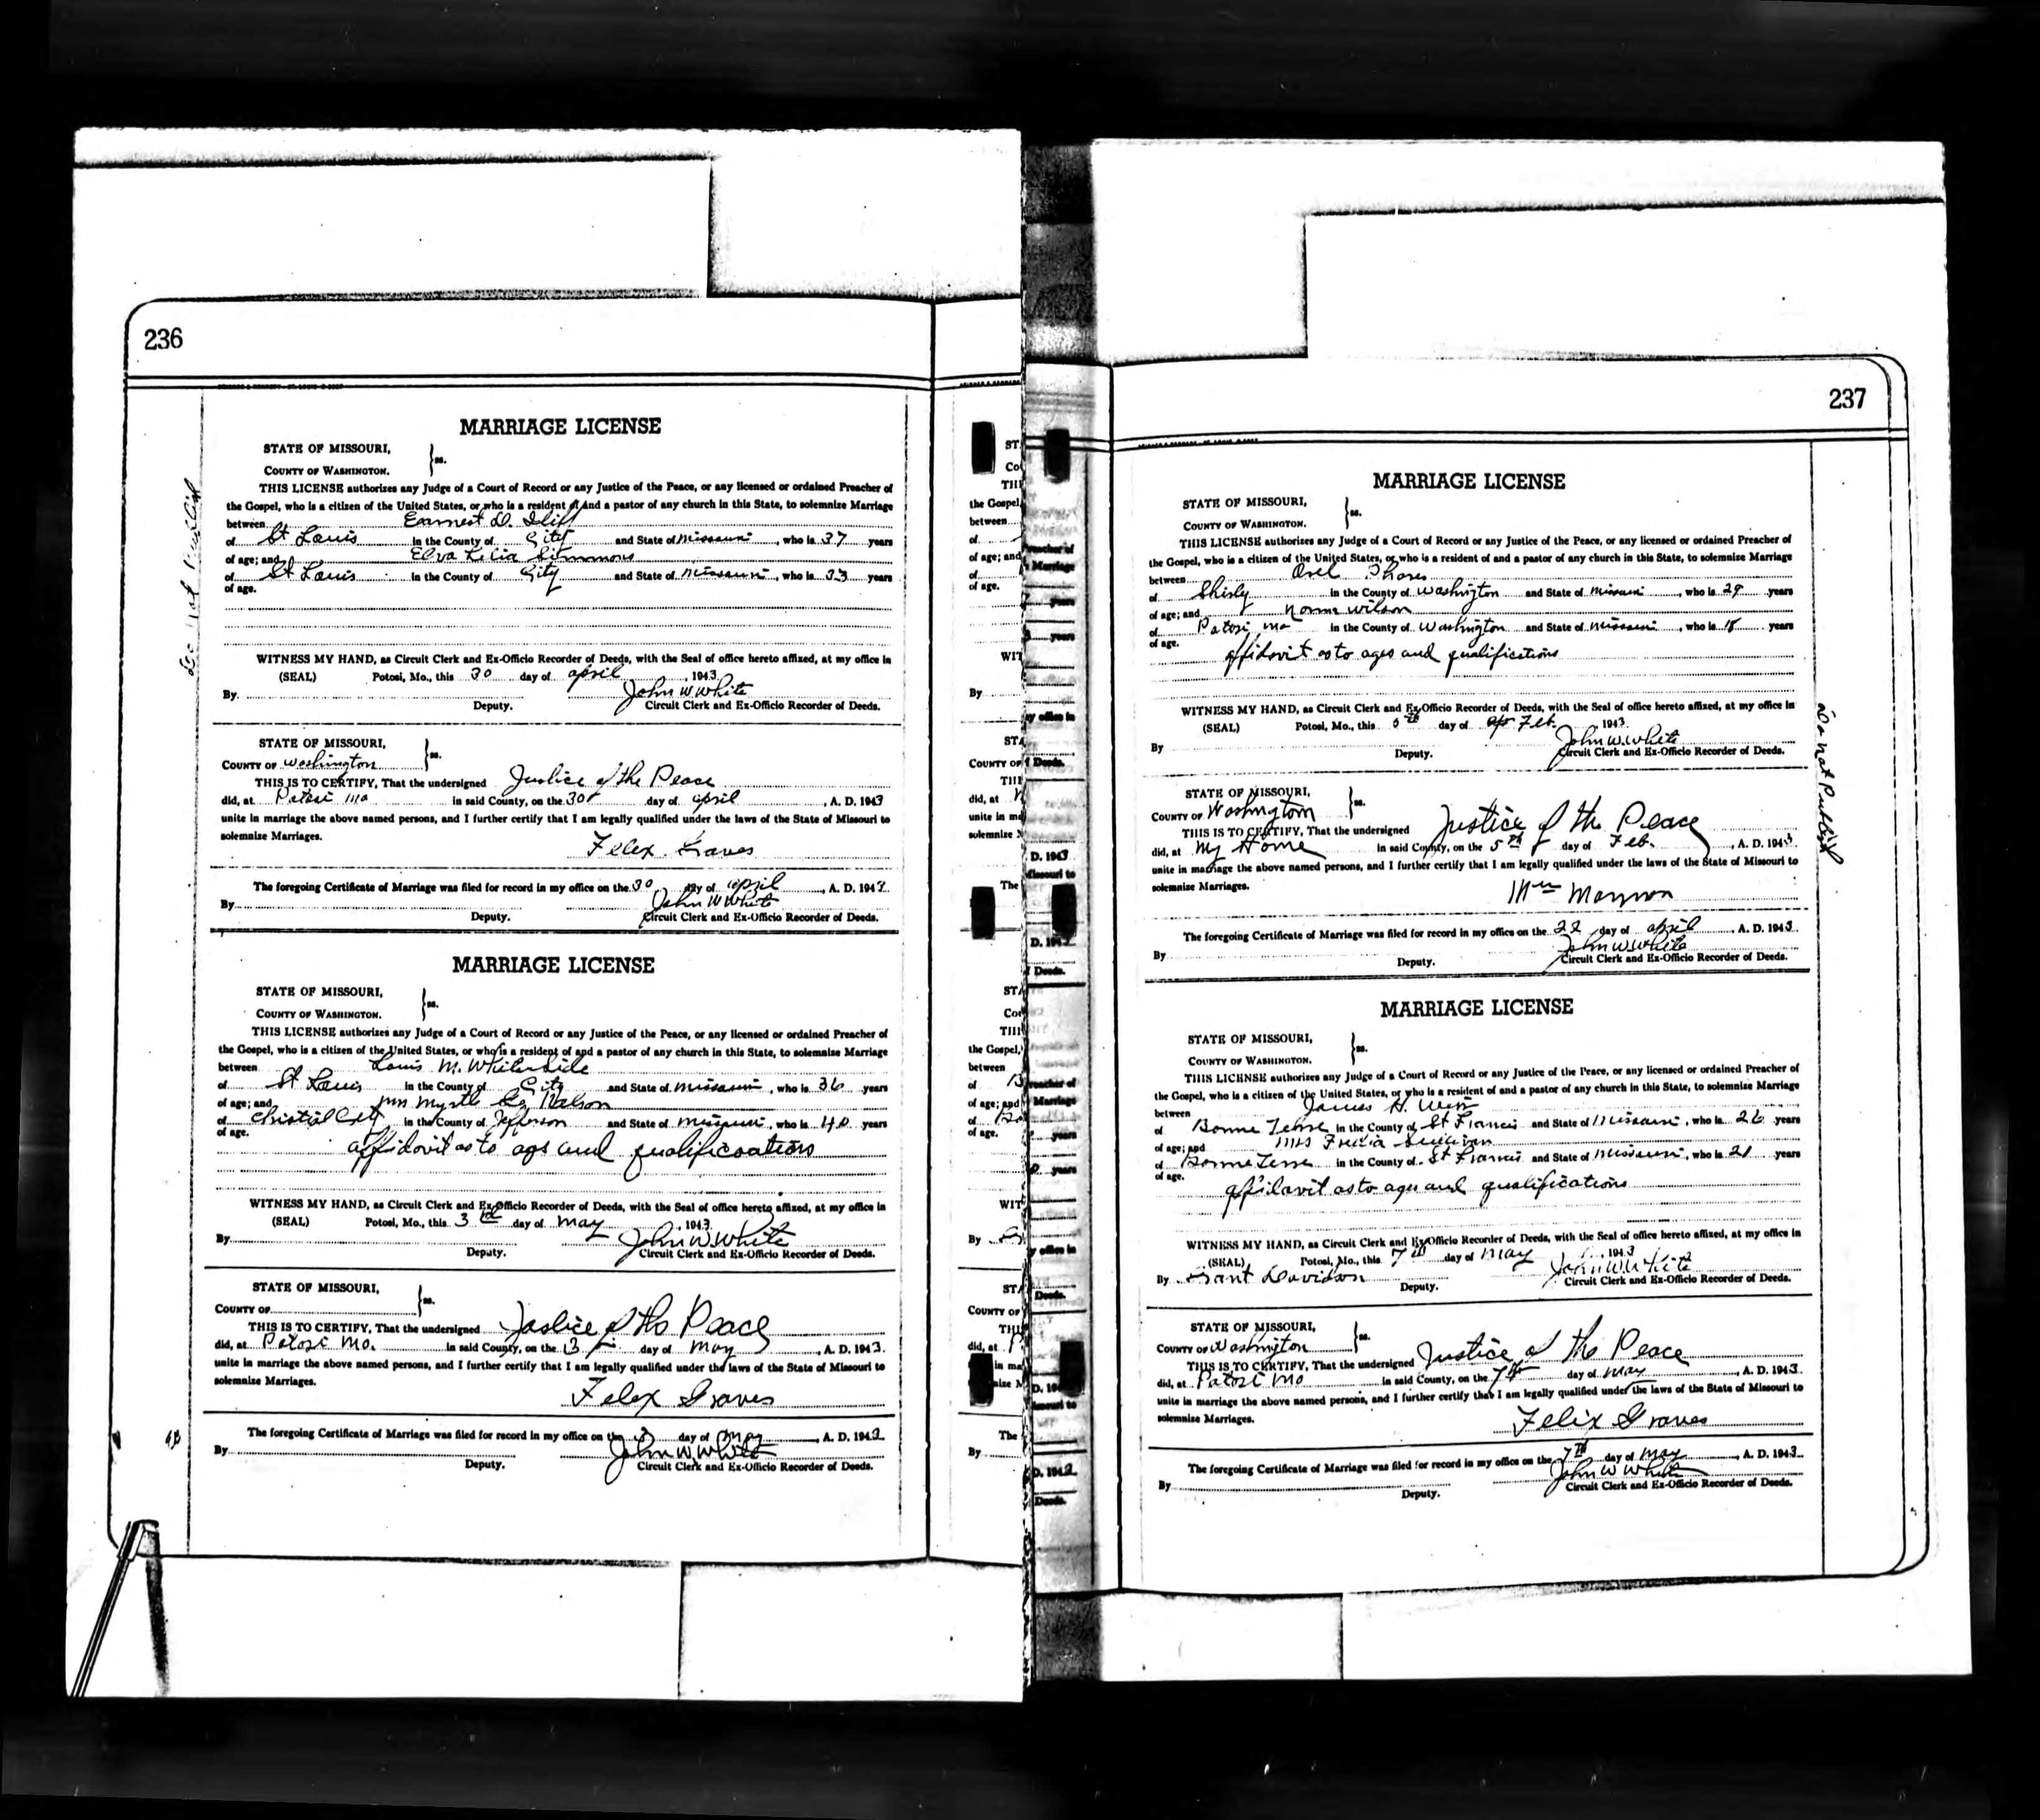 236
MARRIAGE LICENSE
STATE OF MISSOURI,
COUNTY OF WASHINGTON.
ss.
THIS LICENSE authorizes any Judge of a Court of Record or any Justice of the Peace, or any licensed or ordained Preacher of
the Gospel, who is a citizen of the United States, or who is a resident of and a pastor of any church in this State, to solemnize Marriage
between Earnest D.
of St Louis in the County of City and State of Missouri, who is 37 years
of age; and Elva Lilia Simmons
of St Louis in the County of City and State of Missouri, who is 33 years
of age.
WITNESS MY HAND, as Circuit Clerk and Ex-Officio Recorder of Deeds, with the Seal of office hereto affixed, at my office in
(SEAL) Potosi, Mo., this 30 day of april, 1943.
John W White
By Deputy. Circuit Clerk and Ex-Officio Recorder of Deeds.
STATE OF MISSOURI,
COUNTY OF Washington
ss.
THIS IS TO CERTIFY, That the undersigned Justice of the Peace
did, at Potosi Mo in said County, on the 30 day of april, A. D. 1943
unite in marriage the above named persons, and I further certify that I am legally qualified under the laws of the State of Missouri to
solemnize Marriages.
Felix Graves
The foregoing Certificate of Marriage was filed for record in my office on the 30 day of april, A. D. 1943
John W White
By Deputy. Circuit Clerk and Ex-Officio Recorder of Deeds.
MARRIAGE LICENSE
STATE OF MISSOURI,
COUNTY OF WASHINGTON.
ss.
THIS LICENSE authorizes any Judge of a Court of Record or any Justice of the Peace, or any licensed or ordained Preacher of
the Gospel, who is a citizen of the United States, or who is a resident of and a pastor of any church in this State, to solemnize Marriage
between Louis M. Whiteside
of St Louis in the County of City and State of Missouri, who is 36 years
of age; and Mrs Myrtle
of Christal City in the County of Jefferson and State of Missouri, who is 40 years
of age.
affidavit as to ags and qualificoations
WITNESS MY HAND, as Circuit Clerk and Ex-Officio Recorder of Deeds, with the Seal of office hereto affixed, at my office in
(SEAL) Potosi, Mo., this 3 day of May, 1943.
John W White
By Deputy. Circuit Clerk and Ex-Officio Recorder of Deeds.
STATE OF MISSOURI,
COUNTY OF
ss.
THIS IS TO CERTIFY, That the undersigned Justice of the Peace
did, at Potosi Mo. in said County, on the 3 day of May, A. D. 1943.
unite in marriage the above named persons, and I further certify that I am legally qualified under the laws of the State of Missouri to
solemnize Marriages.
Felix Graves
The foregoing Certificate of Marriage was filed for record in my office on the 3 day of May, A. D. 1943.
John W. White
By Deputy. Circuit Clerk and Ex-Officio Recorder of Deeds.
237
MARRIAGE LICENSE
STATE OF MISSOURI,
COUNTY OF WASHINGTON.
ss.
THIS LICENSE authorizes any Judge of a Court of Record or any Justice of the Peace, or any licensed or ordained Preacher of
the Gospel, who is a citizen of the United States, or who is a resident of and a pastor of any church in this State, to solemnize Marriage
between Orel
of Shirly in the County of Washington and State of Missouri, who is 29 years
of age; and Norma Wilson
of Potosi Mo in the County of Washington and State of Missouri, who is 18 years
of age.
affidavit as to ages and qualifications
WITNESS MY HAND, as Circuit Clerk and Ex-Officio Recorder of Deeds, with the Seal of office hereto affixed, at my office in
(SEAL) Potosi, Mo., this 5th day of Feb. 1943.
John W. White
By Deputy. Circuit Clerk and Ex-Officio Recorder of Deeds.
Do not Publish
STATE OF MISSOURI,
COUNTY OF Washington
ss.
THIS IS TO CERTIFY, That the undersigned Justice of the Peace
did, at My Home in said County, on the 5th day of Feb., A. D. 1943.
unite in marriage the above named persons, and I further certify that I am legally qualified under the laws of the State of Missouri to
solemnize Marriages.
The foregoing Certificate of Marriage was filed for record in my office on the 22 day of april, A. D. 1943.
John W White
By Deputy. Circuit Clerk and Ex-Officio Recorder of Deeds.
MARRIAGE LICENSE
STATE OF MISSOURI,
COUNTY OF WASHINGTON.
ss.
THIS LICENSE authorizes any Judge of a Court of Record or any Justice of the Peace, or any licensed or ordained Preacher of
the Gospel, who is a citizen of the United States, or who is a resident of and a pastor of any church in this State, to solemnize Marriage
between James H.
of Bonne Terre in the County of St Francis and State of Missouri, who is 26 years
of age; and Mrs Sullivan
of Bonne Terre in the County of St Francis and State of Missouri, who is 21 years
of age.
affidavit as to ages and qualifications
WITNESS MY HAND, as Circuit Clerk and Ex-Officio Recorder of Deeds, with the Seal of office hereto affixed, at my office in
(SEAL) Potosi, Mo., this 7th day of May, 1943
John W White
By Grant Davidson Deputy. Circuit Clerk and Ex-Officio Recorder of Deeds.
STATE OF MISSOURI,
COUNTY OF Washington
ss.
THIS IS TO CERTIFY, That the undersigned Justice of the Peace
did, at Potosi Mo in said County, on the 7th day of May, A. D. 1943.
unite in marriage the above named persons, and I further certify that I am legally qualified under the laws of the State of Missouri to
solemnize Marriages.
Felix Graves
The foregoing Certificate of Marriage was filed for record in my office on the 7th day of May, A. D. 1943.
John W White
By Deputy. Circuit Clerk and Ex-Officio Recorder of Deeds.